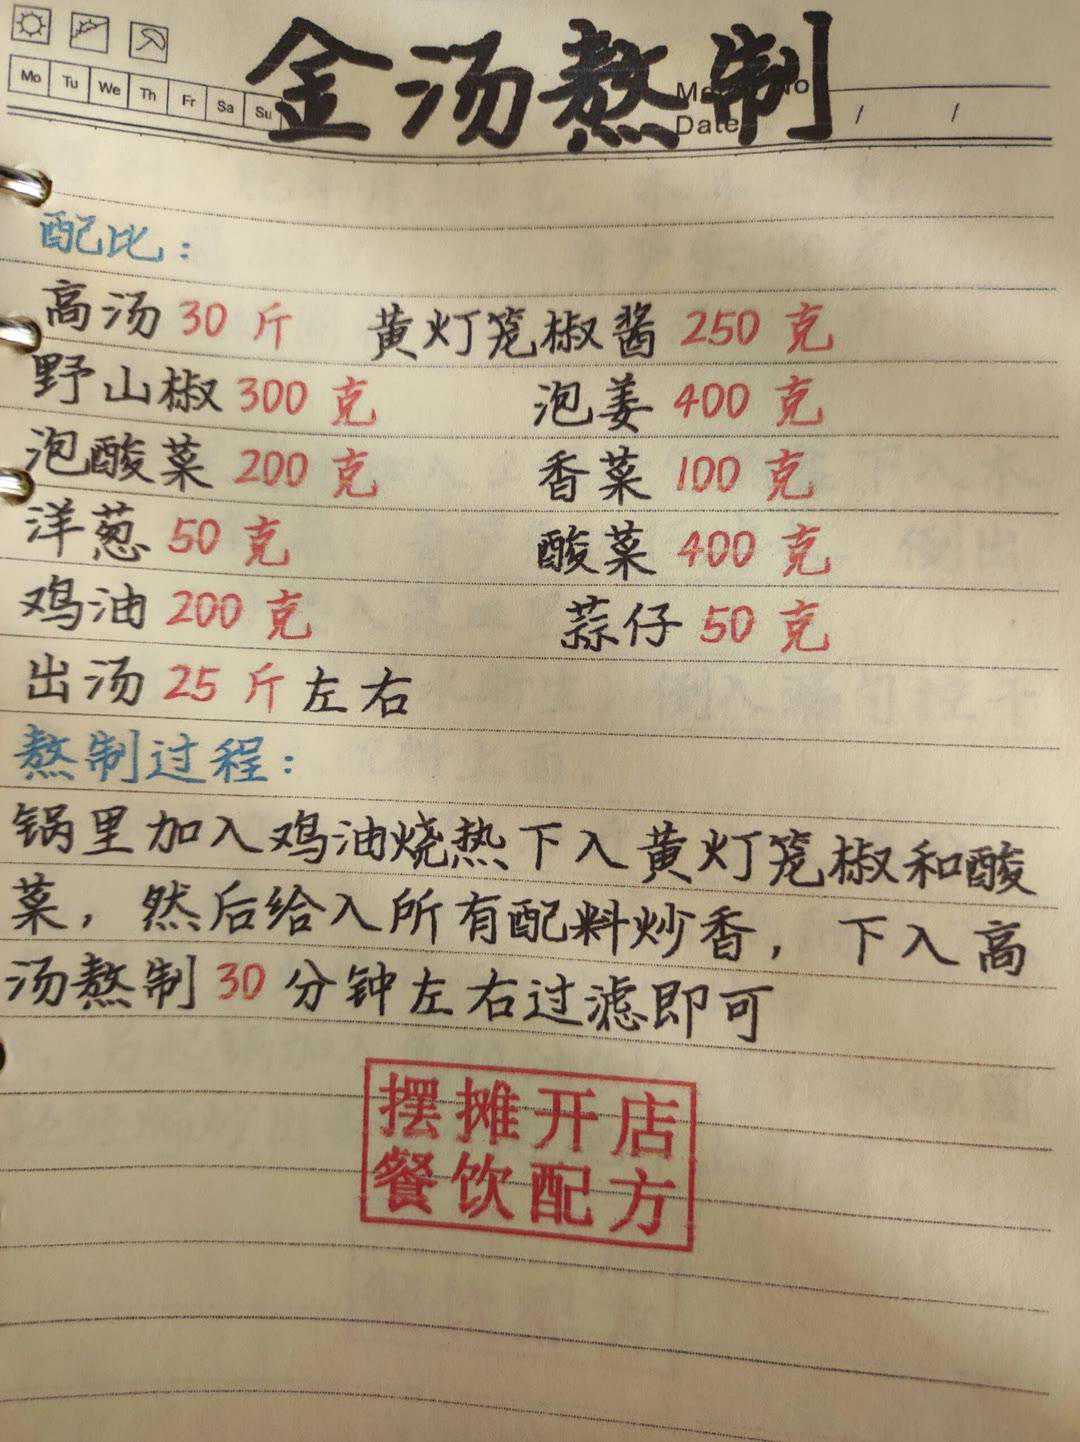 金汤熬制
Mo Tu We Th Fr Sa Su
Date / /
配比：
高汤 30 斤 黄灯笼椒酱 250 克
野山椒 300 克 泡姜 400 克
泡酸菜 200 克 香菜 100 克
洋葱 50 克 酸菜 400 克
鸡油 200 克 蒜仔 50 克
出汤 25 斤左右
熬制过程：
锅里加入鸡油烧热下入黄灯笼椒和酸
菜，然后给入所有配料炒香，下入高
汤熬制 30 分钟左右过滤即可
摆摊开店
餐饮配方